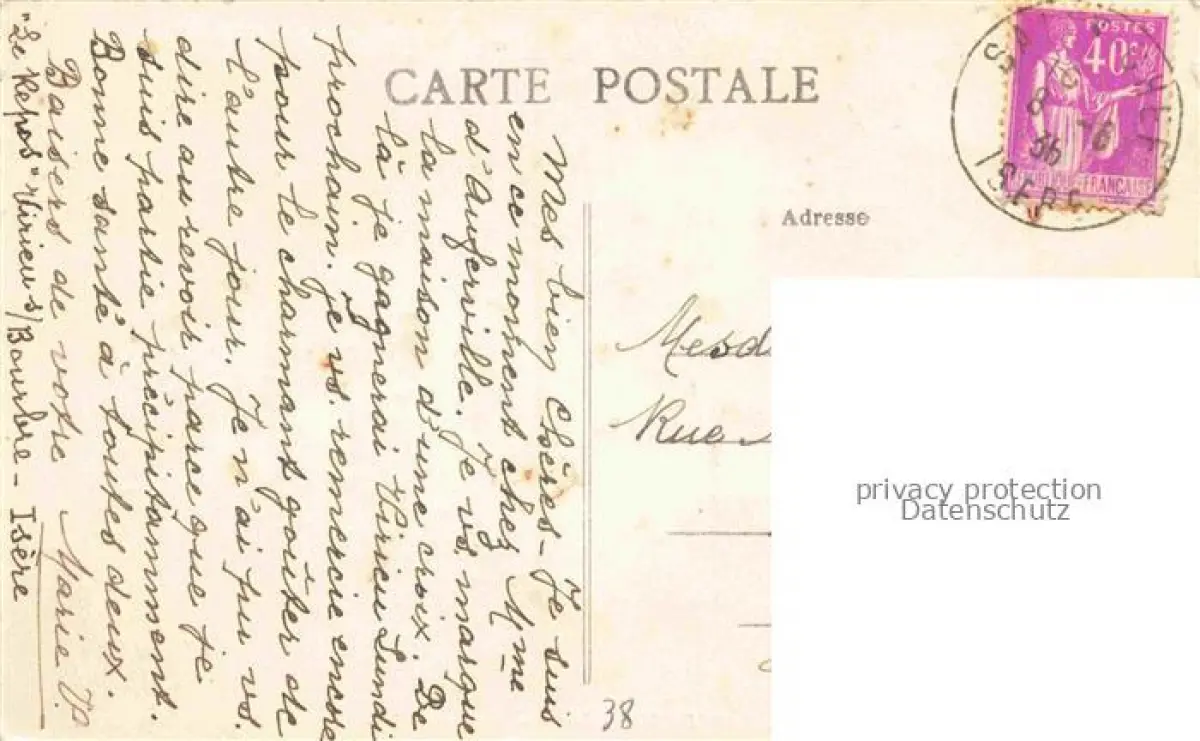 CARTE POSTALE
POSTES
40 c.
ISERE
8 -6
36
Adresse
Mes bien Chères - Je suis
en ce moment chez Mme
d'Angerville. Je vs marque
la maison d'une croix. De
là je gagnerai Virieu Lundi
prochain. Je vs. remercie encore
pour le charmant goûter de
l'autre jour. Je n'ai pu vs.
dire au revoir parce que je
suis partie précipitamment.
Bonne santé à toutes deux.
Baisers de votre Marie P.
"Le Repos" Virieu s/Bourbre - Isère
Mesd
Rue
38
privacy protection
Datenschutz